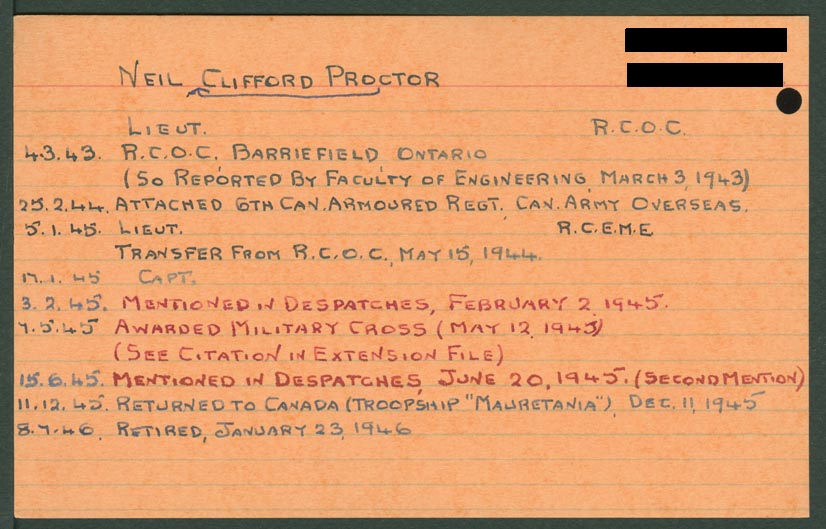 NEIL CLIFFORD PROCTOR
LIEUT. R.C.O.C.
4.3.43. R.C.O.C. BARRIEFIELD, ONTARIO
(SO REPORTED BY FACULTY OF ENGINEERING, MARCH 3, 1943)
25.2.44. ATTACHED 6TH CAN. ARMOURED REGT. CAN. ARMY OVERSEAS.
5.1.45. LIEUT. R.C.E.M.E.
TRANSFER FROM R.C.O.C., MAY 15, 1944.
17.1.45 CAPT.
3.2.45. MENTIONED IN DESPATCHES, FEBRUARY 2, 1945.
7.5.45 AWARDED MILITARY CROSS (MAY 12, 1945)
(SEE CITATION IN EXTENSION FILE)
15.6.45. MENTIONED IN DESPATCHES, JUNE 20, 1945. (SECOND MENTION)
11.12.45. RETURNED TO CANADA (TROOPSHIP "MAURETANIA"), DEC. 11, 1945
8.7.46. RETIRED, JANUARY 23, 1946